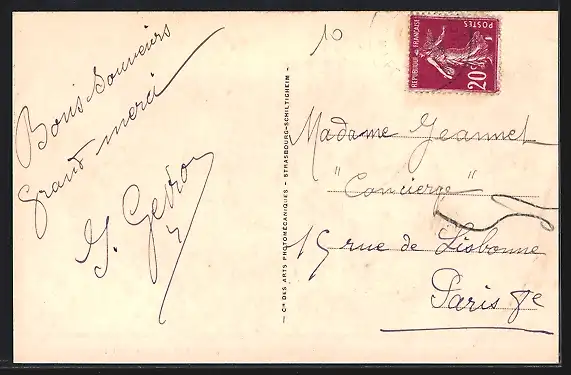 Bons souvenirs
Grand merci
10
POSTES
RÉPUBLIQUE FRANÇAISE
20c
Madame Jeannet
"Concierge"
15 rue de Lisbonne
Paris 8e
Cie DES ARTS PHOTOMÉCANIQUES - STRASBOURG-SCHILTIGHEIM -